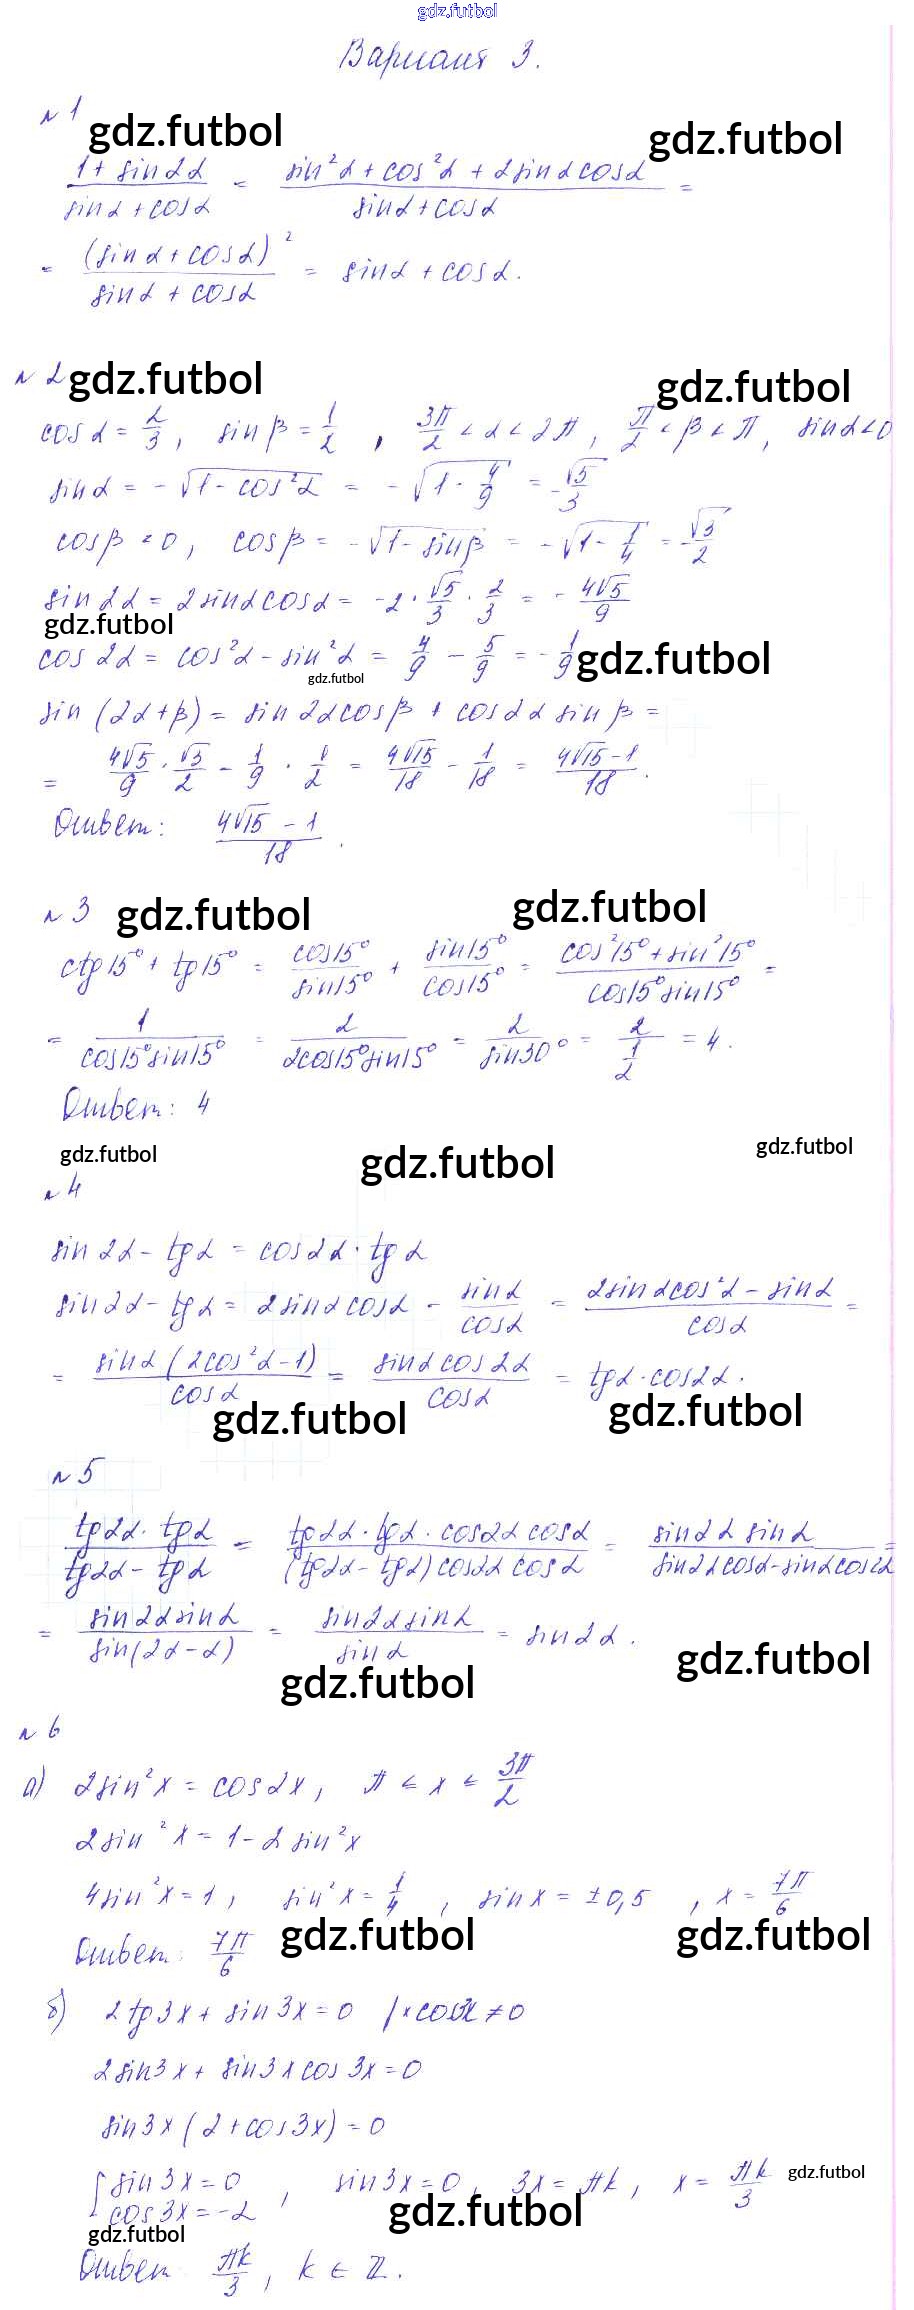 gdz.futbol
Вариант 3.
№ 1
gdz.futbol gdz.futbol
(1 + sin2α)/(sinα + cosα) = (sin²α + cos²α + 2sinαcosα)/(sinα + cosα) =
= (sinα + cosα)²/(sinα + cosα) = sinα + cosα.
№ 2 gdz.futbol gdz.futbol
cosα = 2/3, sinβ = 1/2, 3π/2 < α < 2π, π/2 < β < π, sinα < 0
sinα = -√(1 - cos²α) = -√(1 - 4/9) = -√5/3
cosβ < 0, cosβ = -√(1 - sinβ) = -√(1 - 1/4) = -√3/2
sin2α = 2sinαcosα = -2 · √5/3 · 2/3 = - 4√5/9
gdz.futbol
cos2α = cos²α - sin²α = 4/9 - 5/9 = - 1/9 gdz.futbol
gdz.futbol
sin(2α + β) = sin2αcosβ + cos2α sinβ =
= 4√5/9 · √3/2 - 1/9 · 1/2 = 4√15/18 - 1/18 = (4√15 - 1)/18.
Ответ: (4√15 - 1)/18.
№ 3 gdz.futbol gdz.futbol
ctg15° + tg15° = cos15°/sin15° + sin15°/cos15° = (cos²15° + sin²15°)/(cos15°sin15°) =
= 1/(cos15°sin15°) = 2/(2cos15°sin15°) = 2/sin30° = 2/(1/2) = 4.
Ответ: 4
gdz.futbol gdz.futbol gdz.futbol
№ 4
sin2α - tgα = cos2α · tgα
sin2α - tgα = 2sinαcosα - sinα/cosα = (2sinαcos²α - sinα)/cosα =
= sinα(2cos²α - 1)/cosα = sinαcos2α/cosα = tgα · cos2α.
gdz.futbol gdz.futbol
№ 5
(tg2α · tgα)/(tg2α - tgα) = (tg2α · tgα · cos2α cosα)/((tg2α - tgα)cos2α cosα) = (sin2α sinα)/(sin2αcosα - sinαcos2α) =
= sin2αsinα/sin(2α - α) = sin2αsinα/sinα = sin2α.
gdz.futbol gdz.futbol
№ 6
а) 2sin²x = cos2x, π < x < 3π/2
2sin²x = 1 - 2sin²x
4sin²x = 1, sin²x = 1/4, sinx = ±0,5, x = 7π/6
Ответ: 7π/6 gdz.futbol gdz.futbol
б) 2tg3x + sin3x = 0 |×cos3x ≠ 0
2sin3x + sin3xcos3x = 0
sin3x(2 + cos3x) = 0
[sin3x = 0, sin3x = 0, 3x = πk, x = πk/3 gdz.futbol
cos3x = -2 gdz.futbol
gdz.futbol
Ответ: πk/3, k ∈ ℤ.